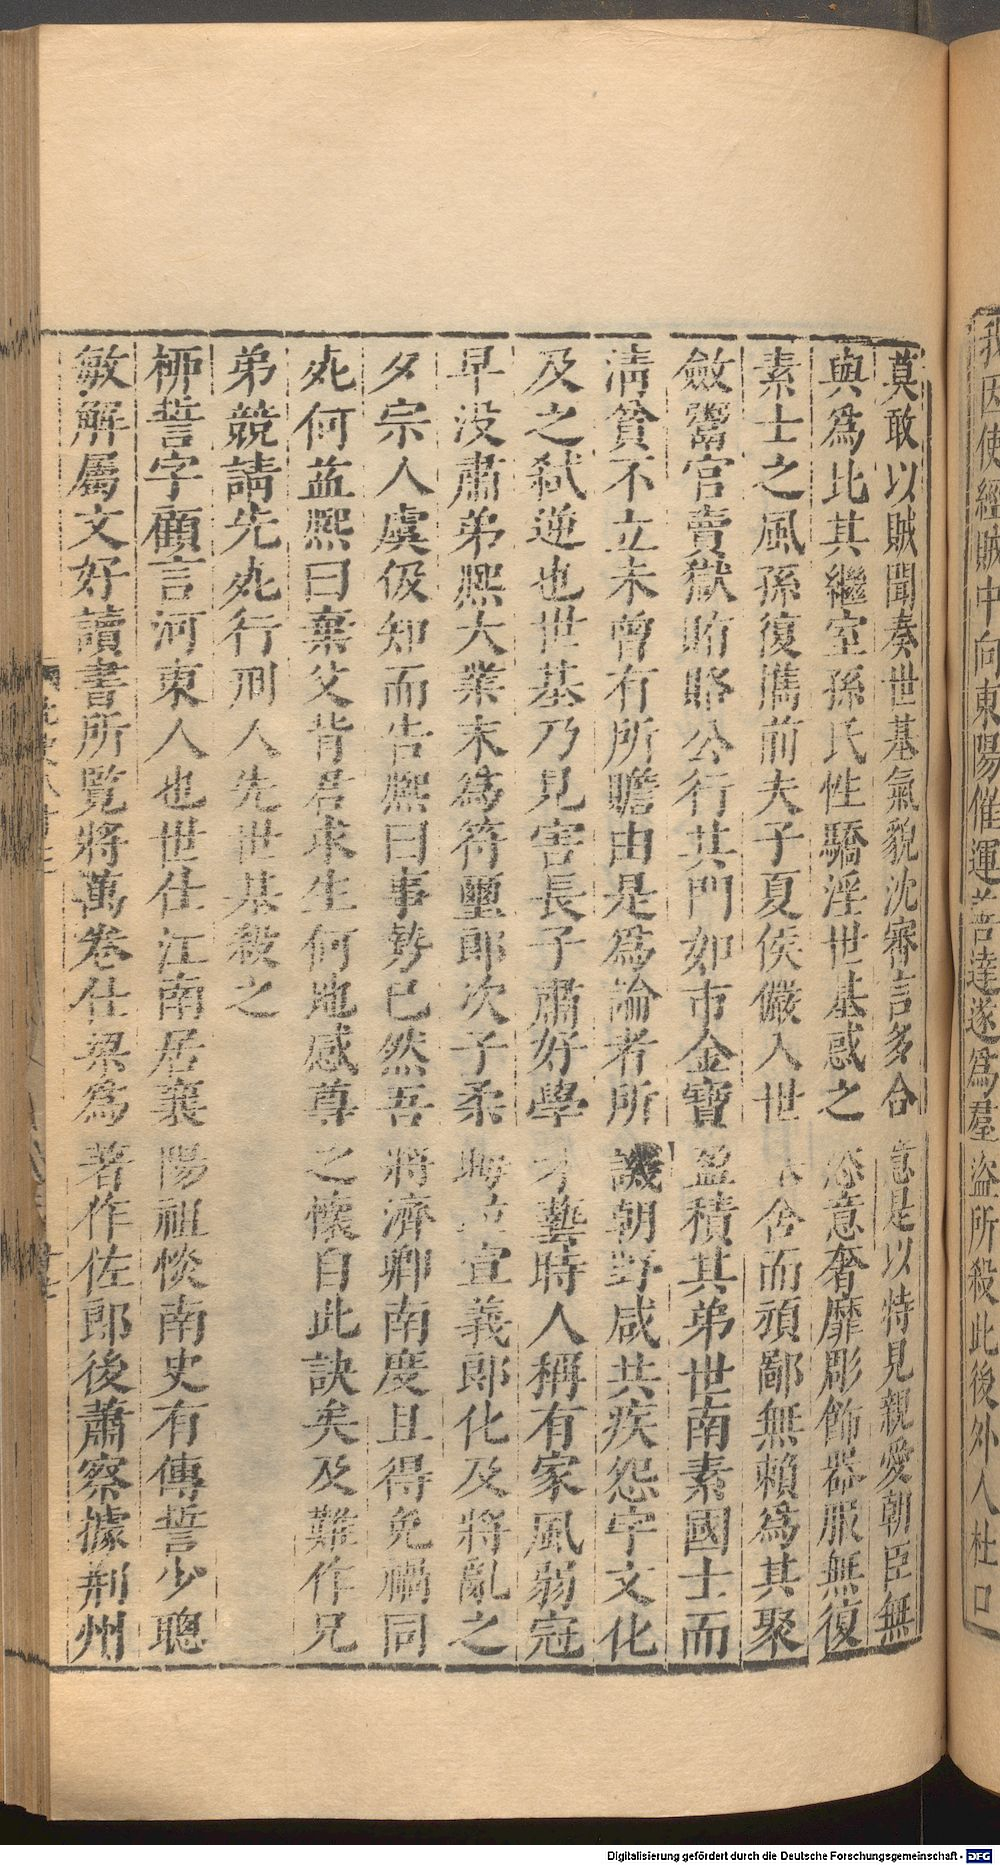 我因使經賊中向東陽催運善達遂爲羣盜所殺此後外人杜口
莫敢以賊聞奏世基氣貌沈審言多合意是以特見親愛朝臣無
與爲比其繼室孫氏性驕淫世基惑之恣意奢靡彫飾器服無復
素士之風孫復攜前夫子夏侯儼入世舍而頑鄙無賴爲其聚
斂鬻官賣獄賄賂公行其門如市金寶盈積其弟世南素國士而
清貧不立未曾有所贍由是爲論者所譏朝野咸共疾怨宇文化
及之弒逆也世基乃見害長子肅好學才藝時人稱有家風弱冠
早没肅弟熙大業末爲符璽郎次子柔晦並宣義郎化及將亂之
夕宗人虞伋知而告熙曰事勢已然吾將濟卿南度且得免禍同
死何益熙曰棄父背君求生何地感尊之懷自此訣矣及難作兄
弟競請先死行刑人先世基殺之
桺䛒字顧言河東人也世仕江南居襄陽祖惔南史有傳䛒少聰
敏解屬文好讀書所覧將萬卷仕梁爲著作佐郎後蕭察據荆州
Digitalisierung gefördert durch die Deutsche Forschungsgemeinschaft - DFG